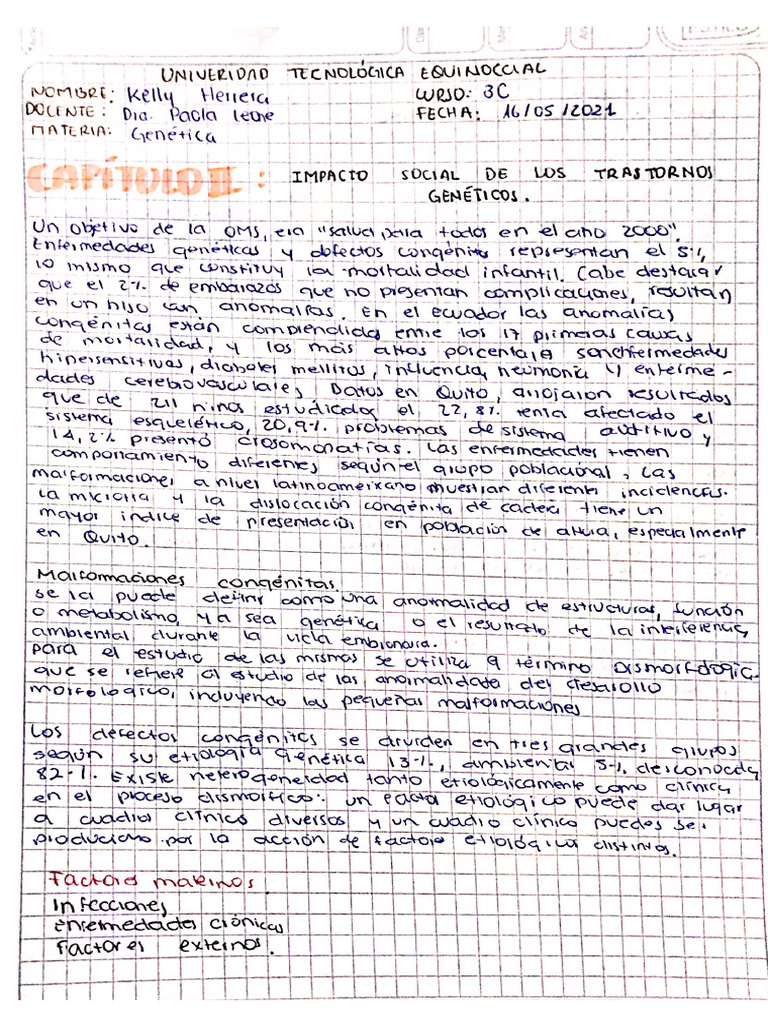 UNIVERIDAD TECNOLÓGICA EQUINOCCIAL
NOMBRE: Kelly Herrera CURSO: 3C
DOCENTE: Dra. Paola Leone FECHA: 16/05/2021
MATERIA: Genética
CAPÍTULO II: IMPACTO SOCIAL DE LOS TRASTORNOS
GENÉTICOS.
Un objetivo de la OMS, era "salud para todos en el año 2000".
Enfermedades genéticas y defectos congénitos representan el 5%,
lo mismo que constituy la mortalidad infantil. Cabe destacar
que el 2% de embarazos que no presentan complicaciones, resultan
en un hijo con anomalías. En el ecuador las anomalías
congénitas están comprendidas entre los 17 primeras causas
de mortalidad, y los más altos porcentajes son enfermedades
hipersensitivas, diabetes mellitos, influencia, neumonía y enferme-
dades cerebrovasculares, Datos en Quito, arrojaron resultados
que de 211 niños estudiados el 22,8% tenía afectado el
sistema esquelético, 20,9% problemas de sistema auditivo y
14,2% presentó crosomonatías. Las enfermedades tienen
comportamiento diferentes según el grupo poblacional, Las
malformaciones a nivel latinoamericano muestran diferentes incidencias.
La microtia y la dislocación congénita de cadera tiene un
mayor índice de presentación en población de altura, especialmente
en Quito.
Malformaciones congénitas.
se la puede definir como una anormalidad de estructuras, función
o metabolismo, ya sea genética o el resultado de la interferencia
ambiental durante la vida embrionaria.
para el estudio de las mismas se utiliza el término Dismorfología
que se refiere al estudio de las anormalidades del desarrollo
morfológico, incluyendo las pequeñas malformaciones
Los defectos congénitos se dividen en tres grandes grupos
según su etiología Genética 13%, ambiental 5%, desconocida
82%. Existe heterogeneidad tanto etiológicamente como clínica
en el proceso dismorfico: un factor etiológico puede dar lugar
a cuadros clínicos diversos y un cuadro clínico puedes ser
producido por la acción de factores etiológicos distintos.
Factores maternos.
Infecciones
Enfermedades crónicas
Factores externos.